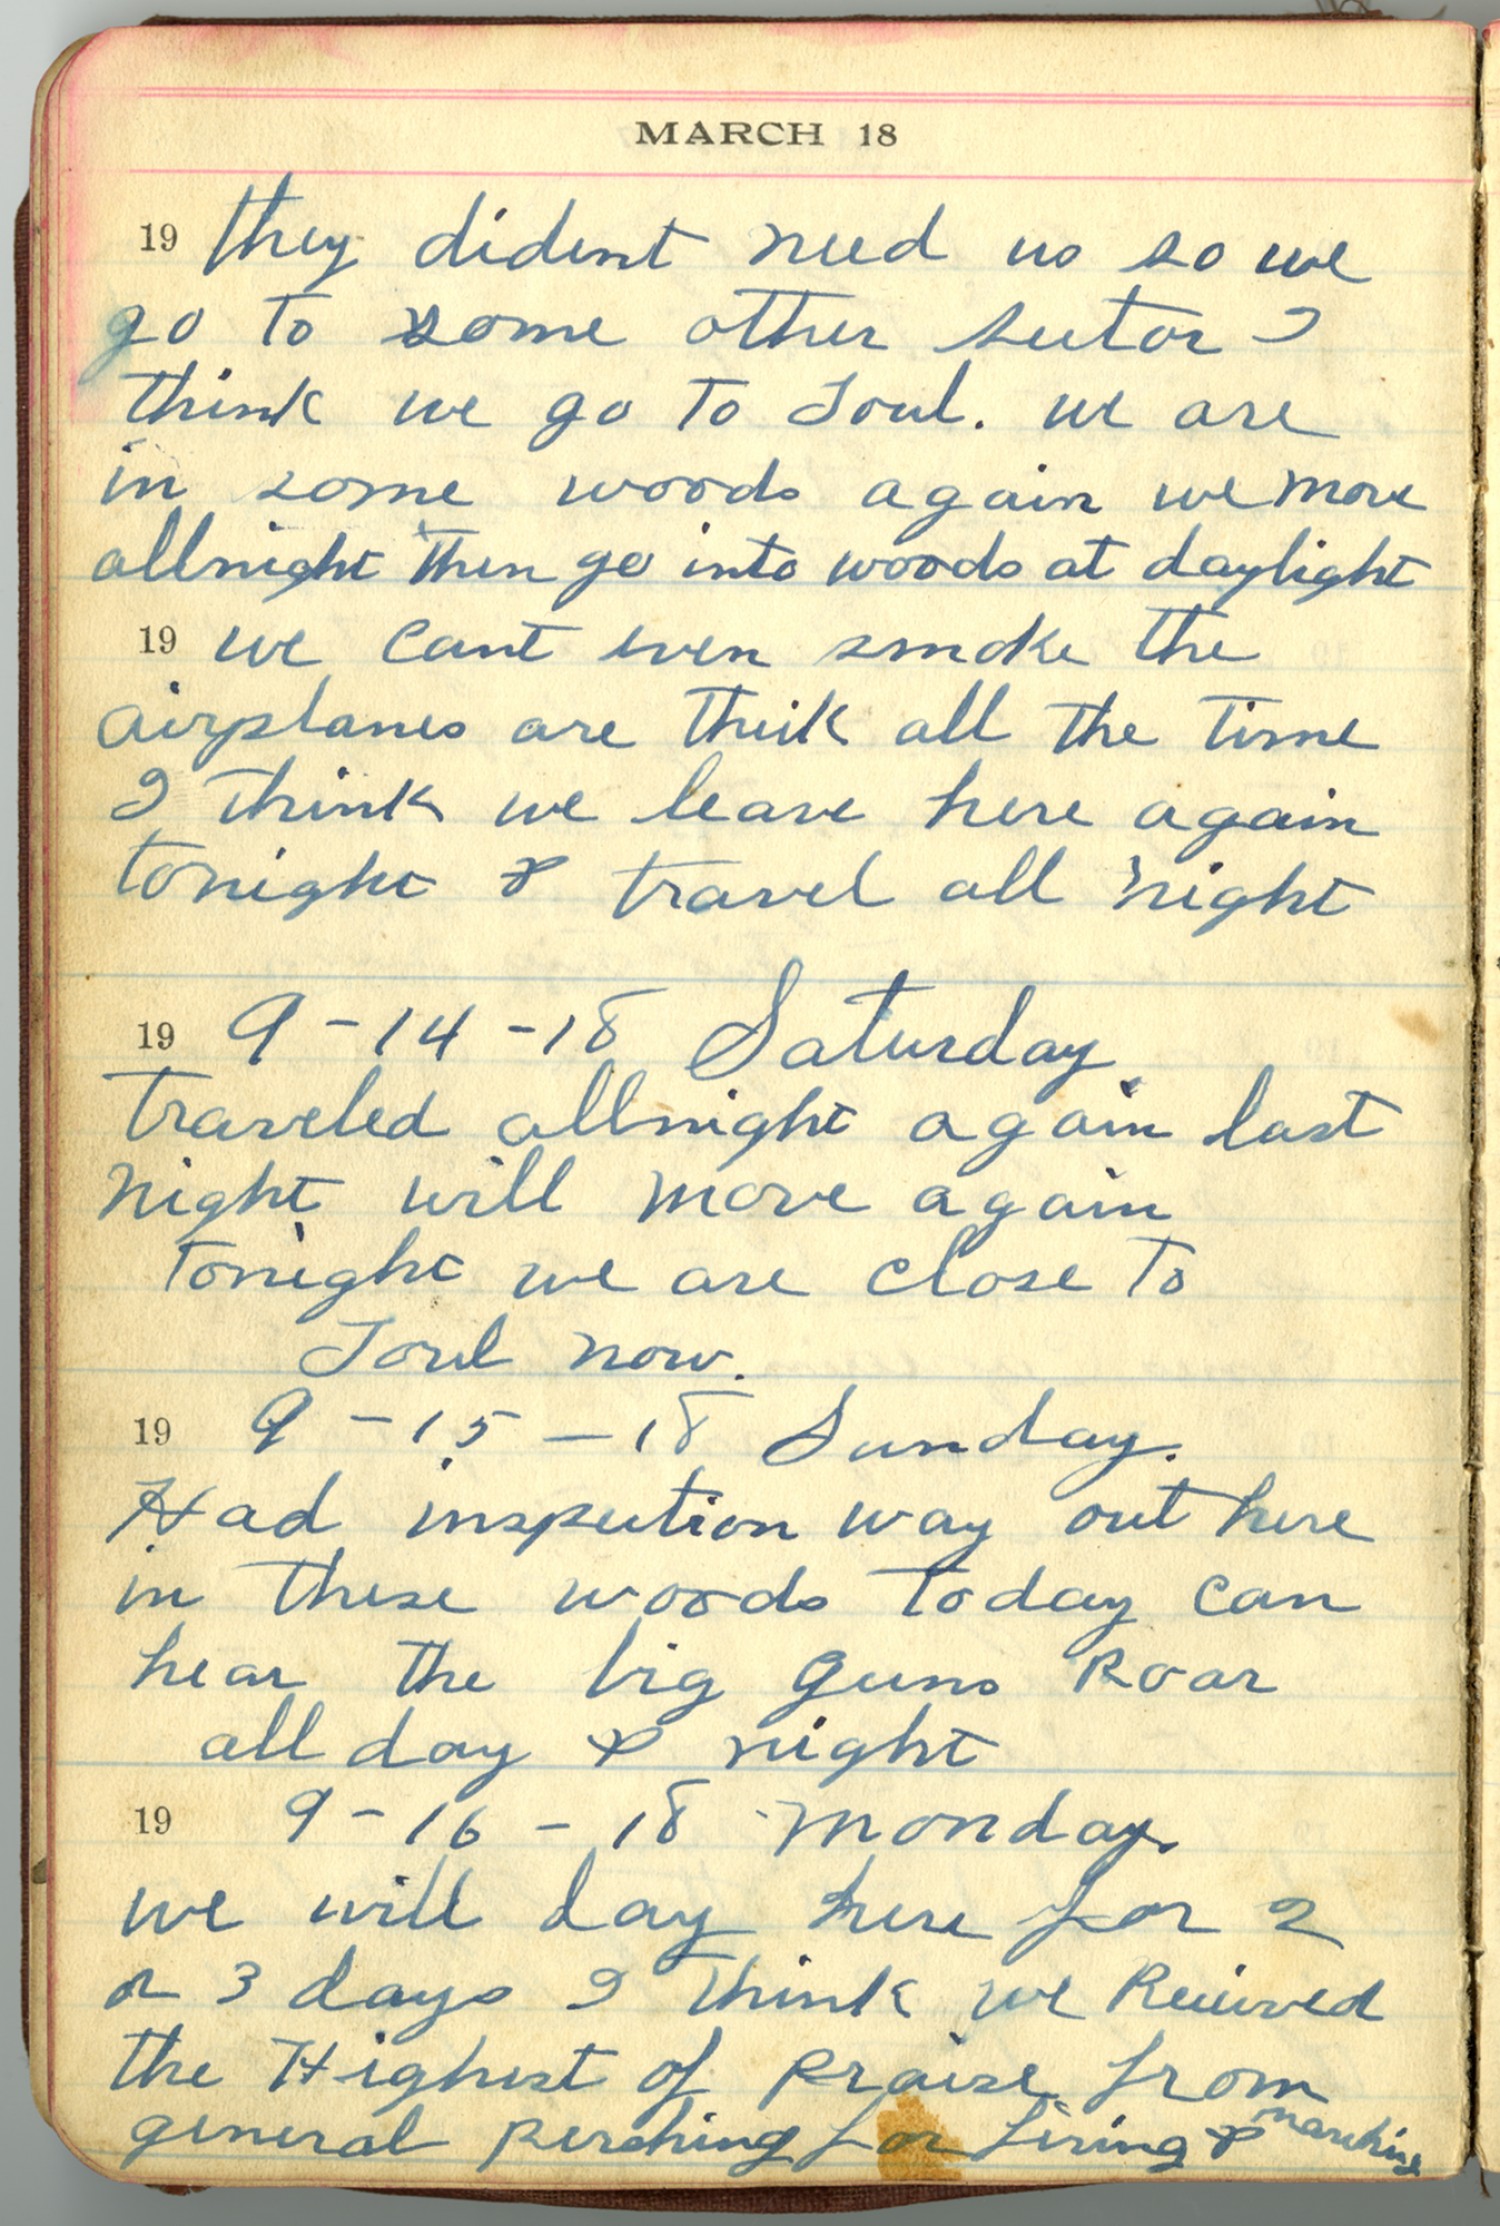 MARCH 18
19 they dident need us so we
go to some other sector I
think we go to Toul. we are
in some woods again we move
allnight then go into woods at daylight
19 we cant even smoke the
airplanes are thick all the time
I think we leave here again
tonight & travel all night
19 9-14-18 Saturday
traveled allnight again last
night will move again
tonight we are close to
Toul now.
19 9-15-18 Sunday.
Had inspection way out here
in these woods today can
hear the big guns Roar
all day & night
19 9-16-18 Monday.
we will lay here for 2
or 3 days I think we Received
the Highest of praise from
general Pershing for firing & marching